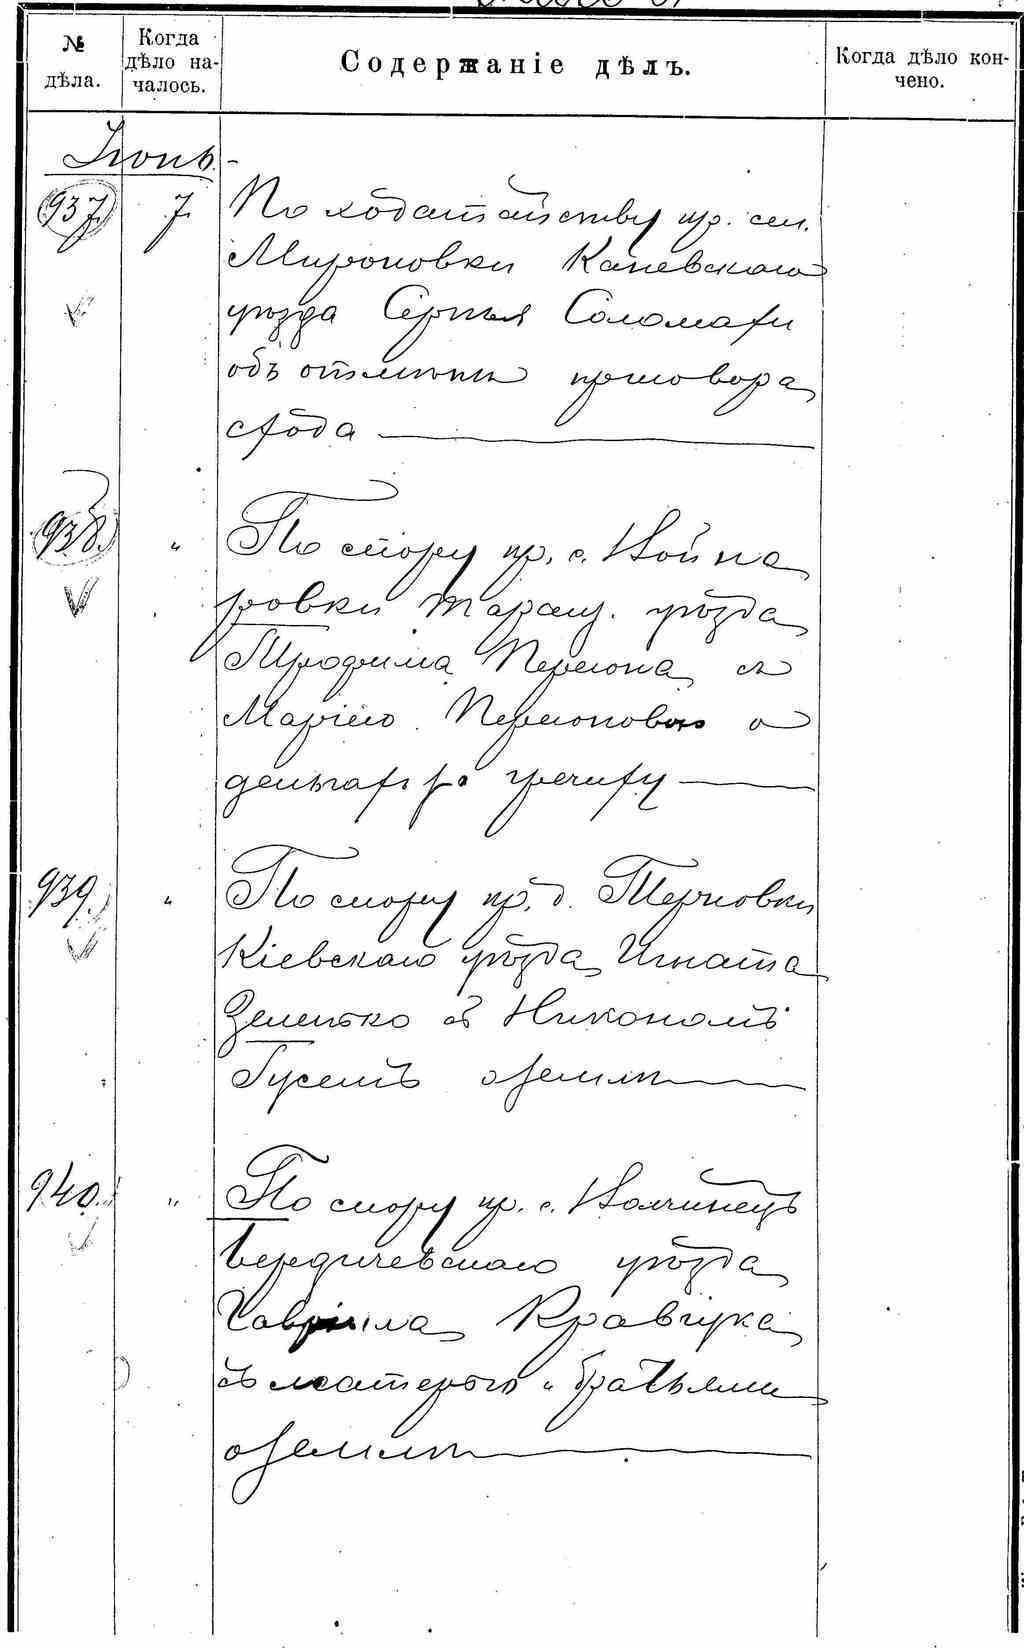 № дѣла.
Когда дѣло началось.
Содержаніе дѣлъ.
Когда дѣло кончено.
Іюнь.
937. 7. По ходатайству кр. сел.
Мироновки Каневскаго
уѣзда Сергѣя Соломахи
объ отмѣнѣ приговора
схода
938. " По спору кр. с. Война
ровки Таращ. уѣзда
Трофима съ
Маріею о
деньгахъ за
939. " По спору кр. д. Терновки
Кіевскаго уѣзда Игната
съ Никономъ
Гусемъ о землѣ
940. " По спору кр. с. Волчинецъ
Бердичевскаго уѣзда
Гавріила Кравчука
съ матерью и братьями
о землѣ